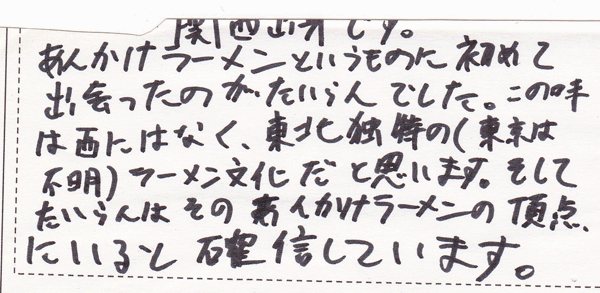 関西出身です。
あんかけラーメンというものに初めて
出会ったのがたいらんでした。この味
は西にはなく、東北独特の(東京は
不明)ラーメン文化だと思います。そして
たいらんはそのあんかけラーメンの頂点
にいると確信しています。